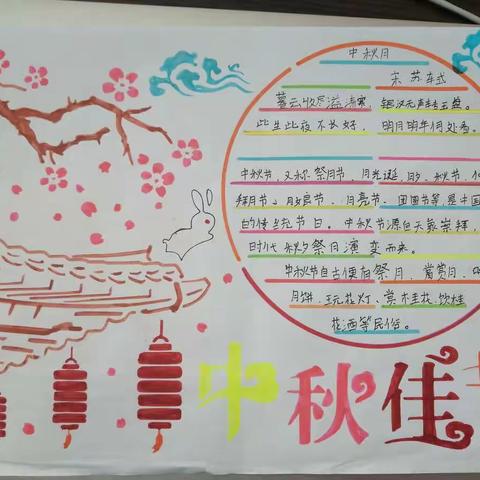 中秋月
宋 苏轼
暮云收尽溢清寒，银汉无声转玉盘。
此生此夜不长好，明月明年何处看。
中秋节，又称祭月节、月光诞、月夕、秋节、
拜月节、月娘节、月亮节、团圆节等，是中国
的传统节日。中秋节源自天象崇拜，
时代秋夕祭月演变而来。
中秋节自古便有祭月、赏月、
月饼、玩花灯、赏桂花、饮桂
花酒等民俗。
中秋佳